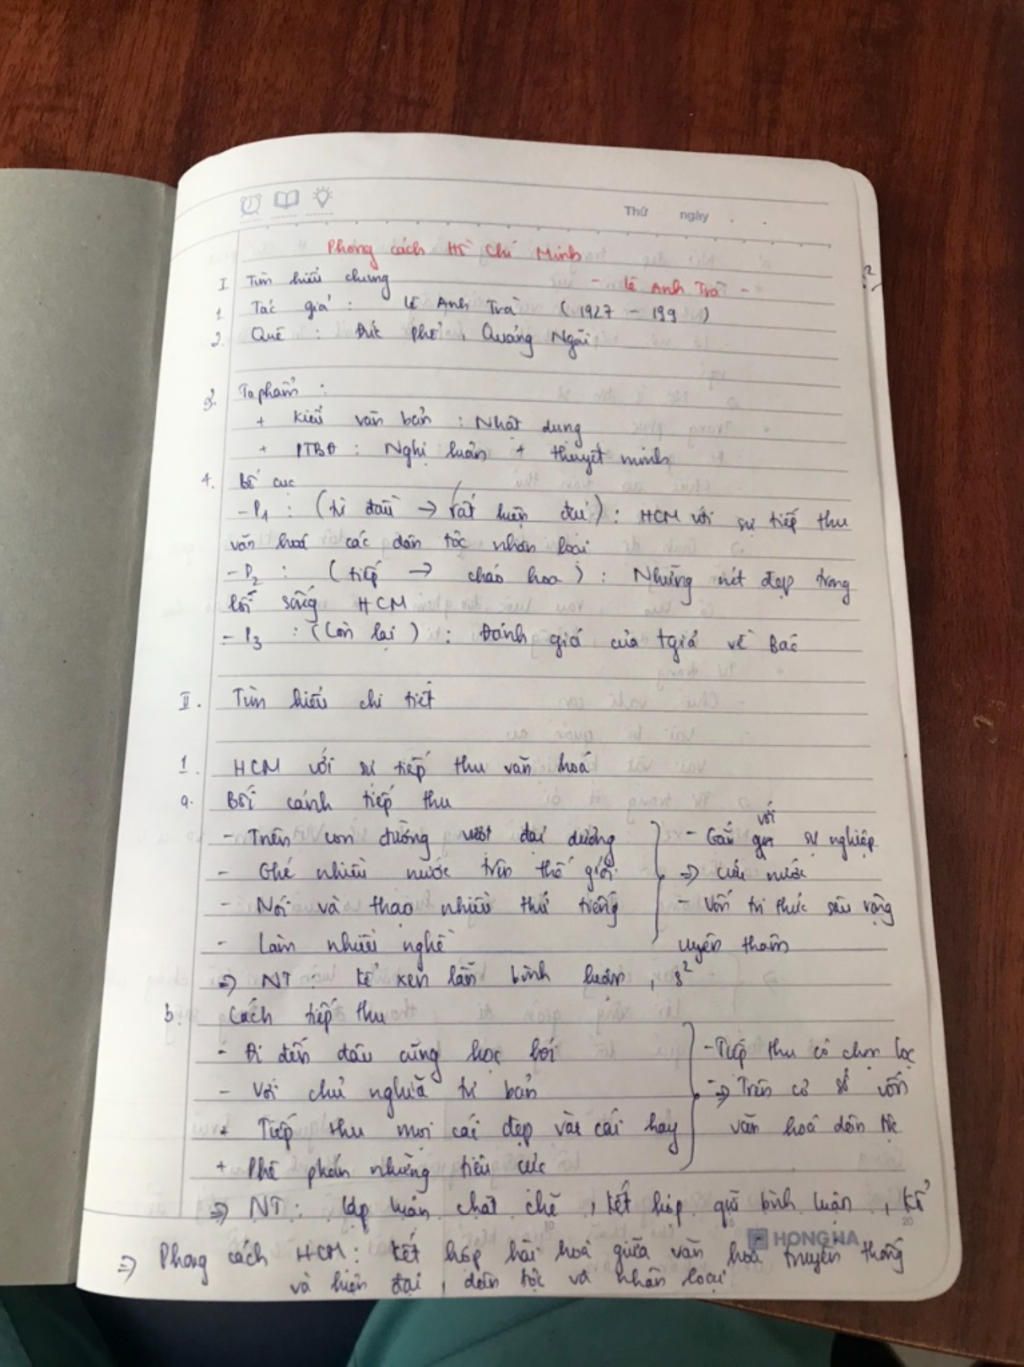 Thứ ngày
Phong cách Hồ Chí Minh
I Tìm hiểu chung - Lê Anh Trà -
1. Tác giả : Lê Anh Trà ( 1927 - 199 )
2. Quê : Đức phổ, Quảng Ngãi
3. Ta phẩm :
+ Kiểu văn bản : Nhật dụng
+ PTBĐ : Nghị luận + thuyết minh
4. Bố cục
- P1 : (từ đầu → rất hiện đại) : HCM với sự tiếp thu
văn hoá các dân tộc nhân loại
- P2 : (tiếp → cháo hoa) : Những nét đẹp trong
lối sống HCM
- P3 : (Còn lại) : Đánh giá của tgiả về Bác
II. Tìm hiểu chi tiết
1. HCM với sự tiếp thu văn hoá
a. Bối cảnh tiếp thu
- Trên con đường vượt đại dương - Gắn với sự nghiệp
- Ghé nhiều nước trên thế giới ⇒ cứu nước
- Nói và thạo nhiều thứ tiếng - Vốn tri thức sâu rộng
- Làm nhiều nghề uyên thâm
⇒ NT : kể xen lẫn bình luận, s²
b. Cách tiếp thu
- Đi đến đâu cũng học hỏi - Tiếp thu có chọn lọc
- Với chủ nghĩa tư bản ⇒ Trên cơ sở vốn
+ Tiếp thu mọi cái đẹp và cái hay văn hoá dân tộc
+ Phê phán những tiêu cực
⇒ NT : lập luận chặt chẽ, kết hợp giữa bình luận, kể
HONG HA
⇒ Phong cách HCM : kết hợp hài hoà giữa văn hoá truyền thống
và hiện đại, dân tộc và nhân loại